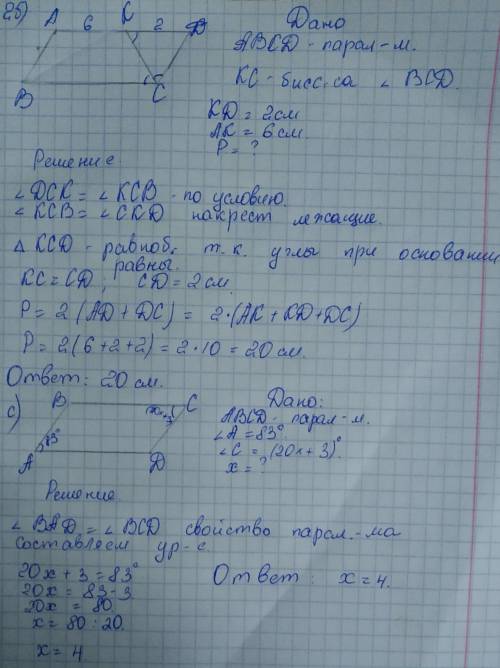 2б) A 6 K 2 D Дано
ABCD - парал-м.
B C KC - бисс-са ∠ BCD.
KD = 2см
AK = 6 см.
P = ?
Решение
∠ DCK = ∠ KCB - по условию.
∠ KCB = ∠ CKD накрест лежащие.
Δ KCD - равноб. т.к. углы при основании
равны.
KC = CD; CD = 2 см.
P = 2 (AD + DC) = 2·(AK + KD + DC)
P = 2(6 + 2 + 2) = 2·10 = 20 см.
Ответ: 20 см.
c) B C Дано:
83° ABCD - парал-м.
A D ∠A = 83°
∠C = (20x + 3)°
x = ?
Решение
∠ BAD = ∠ BCD свойство парал.-ма
составляем ур-е.
20x + 3 = 83° Ответ: x = 4.
20x = 83-3
20x = 80
x = 80 : 20.
x = 4